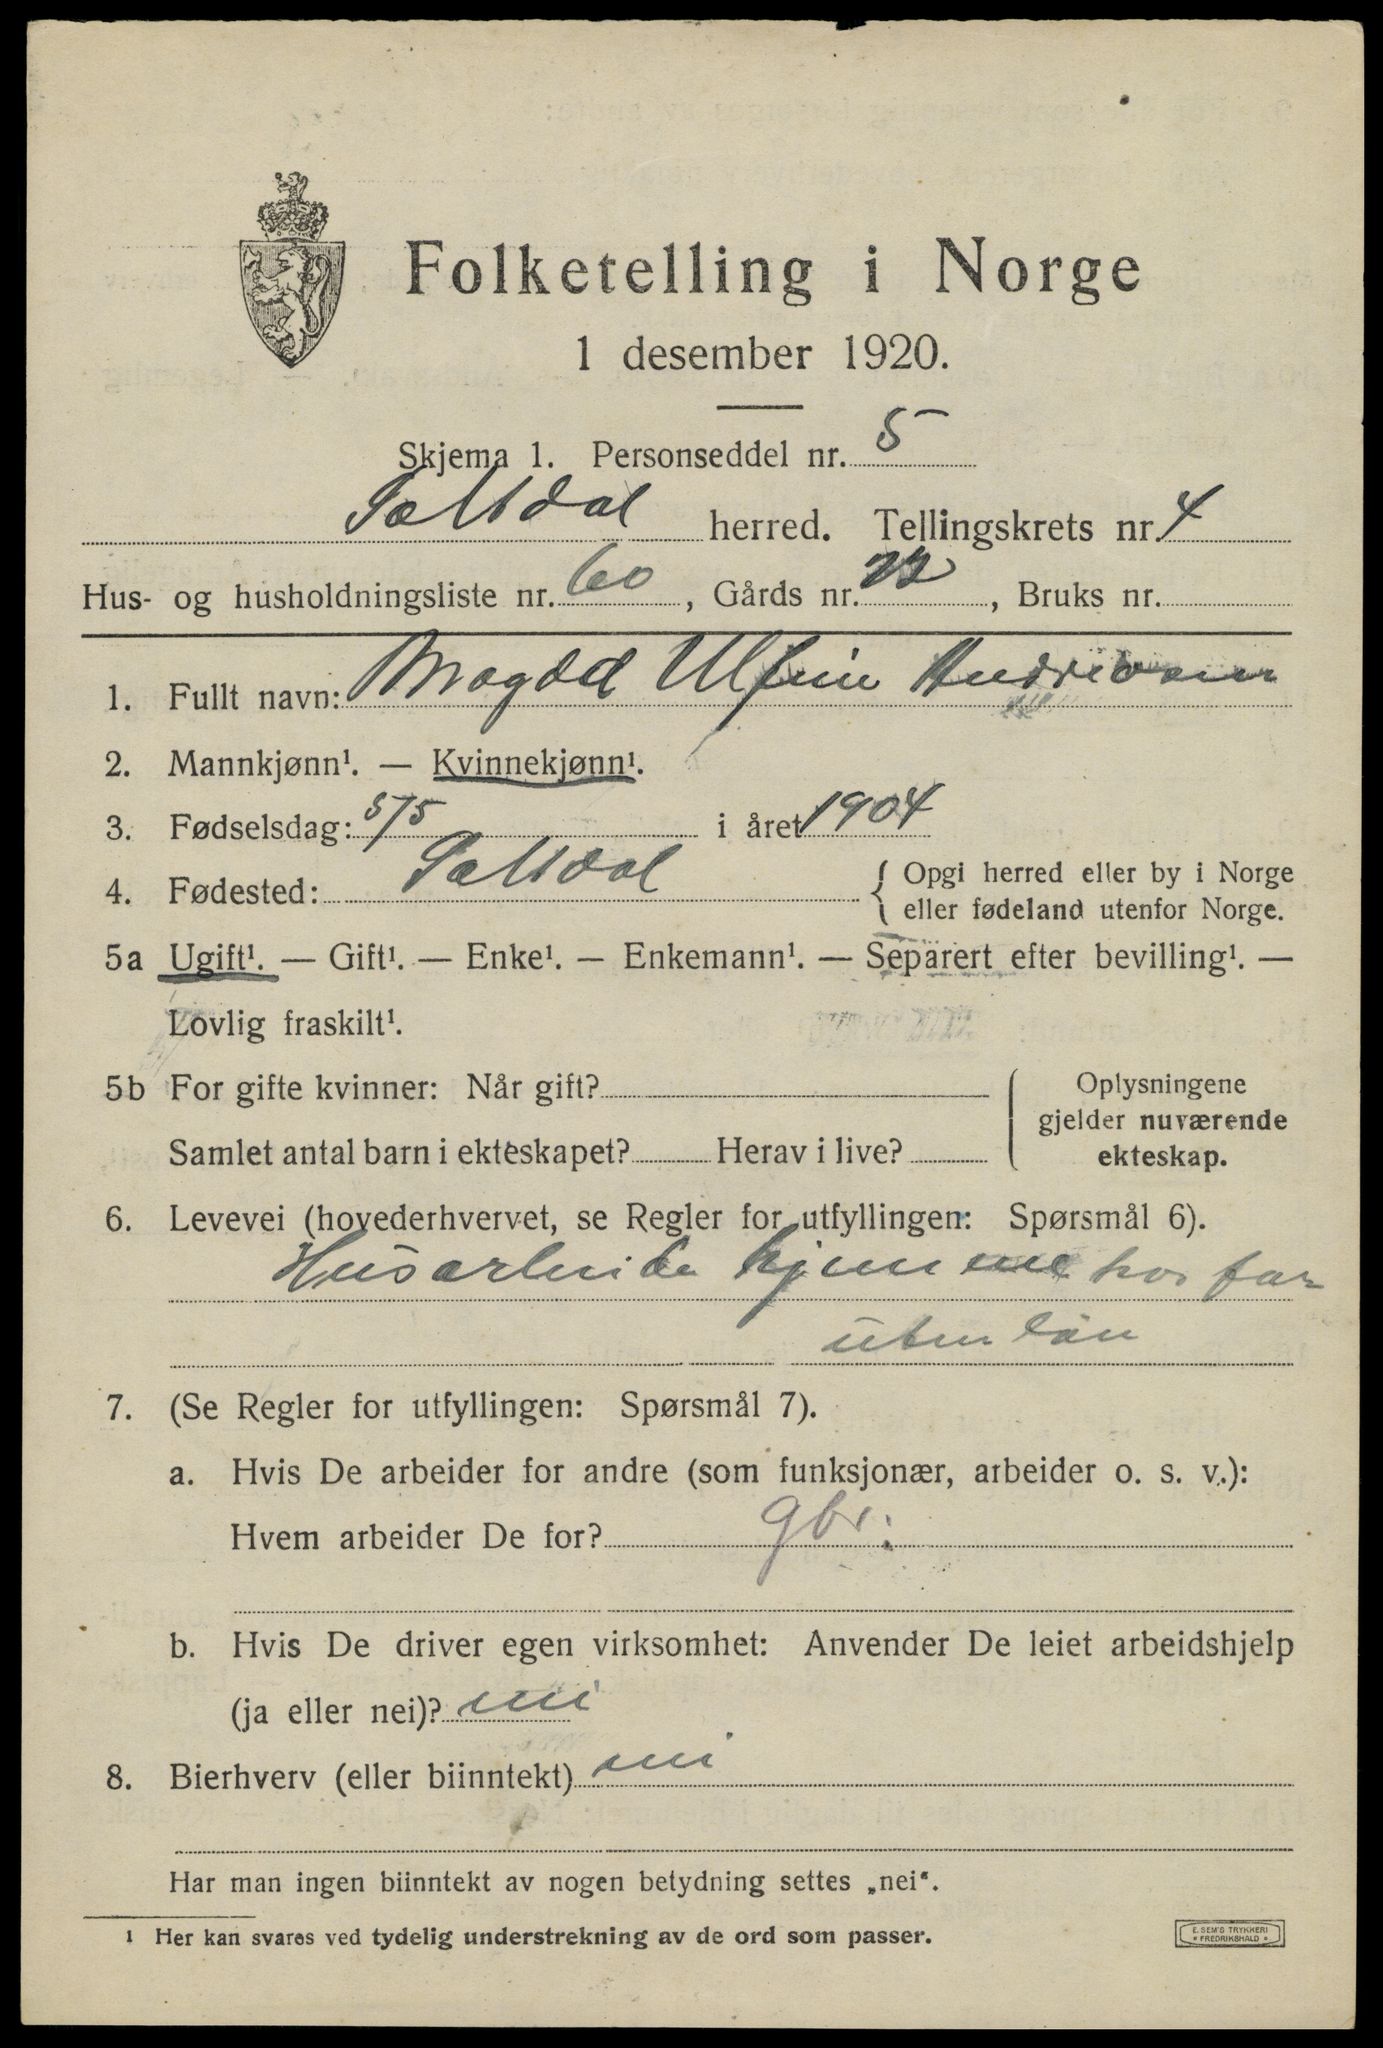 Folketelling i Norge
1 desember 1920.
Skjema 1. Personseddel nr. 5
Saltdal herred. Tellingskrets nr. 4
Hus- og husholdningsliste nr. 60, Gårds nr. 22, Bruks nr.
1. Fullt navn: Magdd
2. Mannkjønn¹. — Kvinnekjønn¹.
3. Fødselsdag: 5/5 i året 1904
4. Fødested: Saltdal { Opgi herred eller by i Norge
eller fødeland utenfor Norge.
5a Ugift¹. — Gift¹. — Enke¹. — Enkemann¹. — Separert efter bevilling¹. —
Lovlig fraskilt¹.
5b For gifte kvinner: Når gift?
Samlet antal barn i ekteskapet? Herav i live?
Oplysningene
gjelder nuværende
ekteskap.
6. Levevei (hovederhvervet, se Regler for utfyllingen: Spørsmål 6).
Husarbeide hjemme hos far
uten løn
7. (Se Regler for utfyllingen: Spørsmål 7).
a. Hvis De arbeider for andre (som funksjonær, arbeider o. s. v.):
Hvem arbeider De for? gbr:
b. Hvis De driver egen virksomhet: Anvender De leiet arbeidshjelp
(ja eller nei)? nei
8. Bierhverv (eller biinntekt) nei
Har man ingen biinntekt av nogen betydning settes „nei“.
1 Her kan svares ved tydelig understrekning av de ord som passer.
E. SEM'S TRYKKERI
* FREDRIKSHALD *